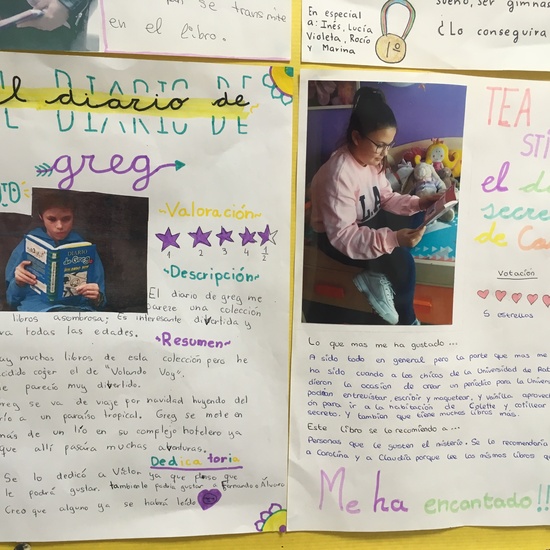 se transmite
en el libro.
En especial
a: Inés, Lucía
Violeta, Rocío
y Marina
1º
sueño, ser gimnas
¿Lo conseguira
El diario de
EL DIARIO DE
greg
~Valoración~
1 2 3 4 1/2
~Descripción~
El diario de greg me
parece una colección
libros asombrosa; Es interesante divertida y
para todas las edades.
~Resumen~
Hay muchos libros de esta colección pero he
decidido cojer el de "Volando Voy".
me parecia muy divertido.
Greg se va de viaje por navidad huyendo del
frío a un paraíso tropical. Greg se mete en
más de un lío en su complejo hotelero ya
que allí pasara muchas aventuras.
Dedicatoria
Se lo dedicó a Víctor ya que pienso que
le podrá gustar. tambien le podria gustar a Fernando o Álvaro
Creo que alguno ya se habrá leído
DIARIO
de Greg
TEA
STI
el di
secre
de Co
Votación
5 estrellas
Lo que mas me ha gustado ...
A sido todo en general pero la parte que mas me
ha sido cuando a las chicas de la Universidad de
dieron la ocasion de crear un periodico para la Univers
podian entrevistar, escribir y maquetear, y vainilla aprovec
on para ir a la habitación de Colette y cotillear
secreto. Y tambien que tiene muchos libros mas.
Este libro se lo recomiendo a ...
Personas que le gusten el misterio. Se lo recomendaria
a Carolina y a Claudia porque lee los mismos libros que
Me ha encantado!!